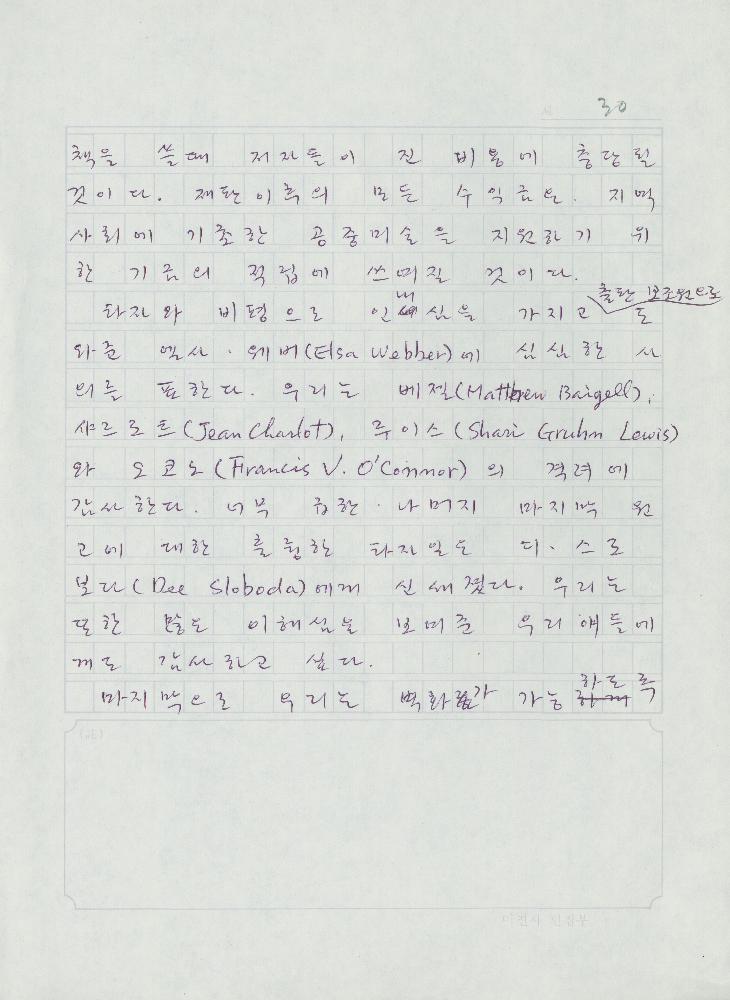 30
책을 쓸때 저자들이 진 비용에 충당될
것이다. 재판이후의 모든 수익금은. 지역
사회에 기초한 공중미술을 지원하기 위
한 기금의 적립에 쓰여질 것이다.
타자와 비평으로 인내심을 가지고 출판 보조원으로 도
와준 엘사·웨버(Elsa Webber)에 심심한 사
의를 표한다. 우리는 베젤(Matthew Baigell),
샤르로트(Jean Charlot), 루이스(Shari Gruhn Lewis)
와 오코노(Francis V. O'Connor)의 격려에
감사한다. 너무 귀한·나머지 마지막 원
고에 대한 훌륭한 타자일도 디·스로
보다(Dee Sloboda)에게 신세졌다. 우리는
또한 많은 이해심을 보여준 우리 얘들에
게도 감사하고 싶다.
마지막으로 우리는 벽화가 가능하도록